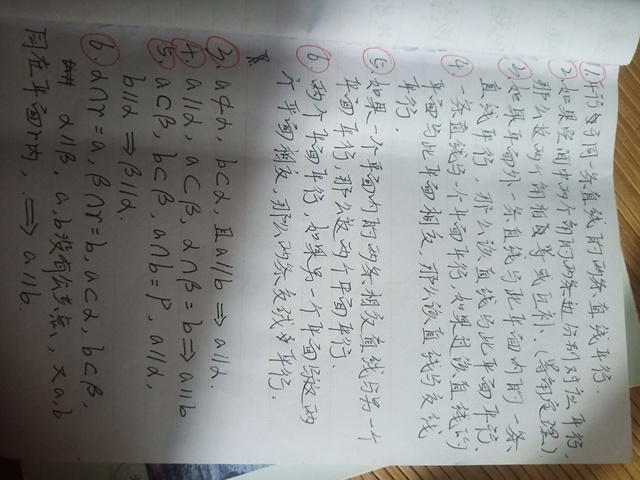 1. 平行于同一条直线的两条直线平行.
2. 如果空间中两个角的两条边分别对应平行,
那么这两个角相等或互补. (等角定理)
3. 如果平面外一条直线与此平面内的一条
直线平行, 那么该直线与此平面平行.
4. 一条直线与一个平面平行, 如果过该直线的
平面与此平面相交, 那么该直线与交线
平行.
5. 如果一个平面内的两条相交直线与另一个
平面平行, 那么这两个平面平行.
6. 两个平面平行, 如果另一个平面与这两
个平面相交, 那么两条交线平行.
3. a⊄α, b⊂α, 且a∥b ⇒ a∥α.
4. a∥α, a⊂β, α∩β=b ⇒ a∥b
5. a⊂β, b⊂β, a∩b=P, a∥α,
b∥α ⇒ β∥α.
6. α∩γ=a, β∩γ=b, a⊂α, b⊂β,
α∥β, a,b没有公共点, 又a,b
同在平面γ内, ⇒ a∥b.